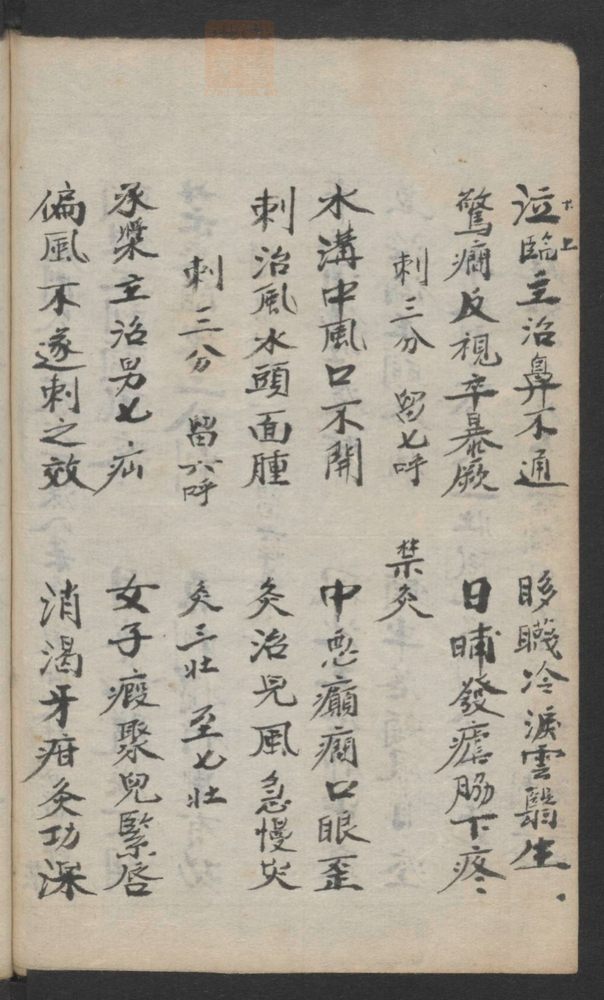 泣臨主治鼻不通 眵䁾冷淚雲翳生
下上
驚癇反視卒暴厥 日晡發瘧脇下疼
刺三分 留七呼 禁灸
水溝中風口不開 中惡癲癇口眼歪
刺治風水頭面腫 灸治兒風急慢災
刺三分 留六呼 灸三壯 至七壯
承漿主治男七疝 女子瘕聚兒緊唇
偏風不遂刺之效 消渴牙疳灸功深